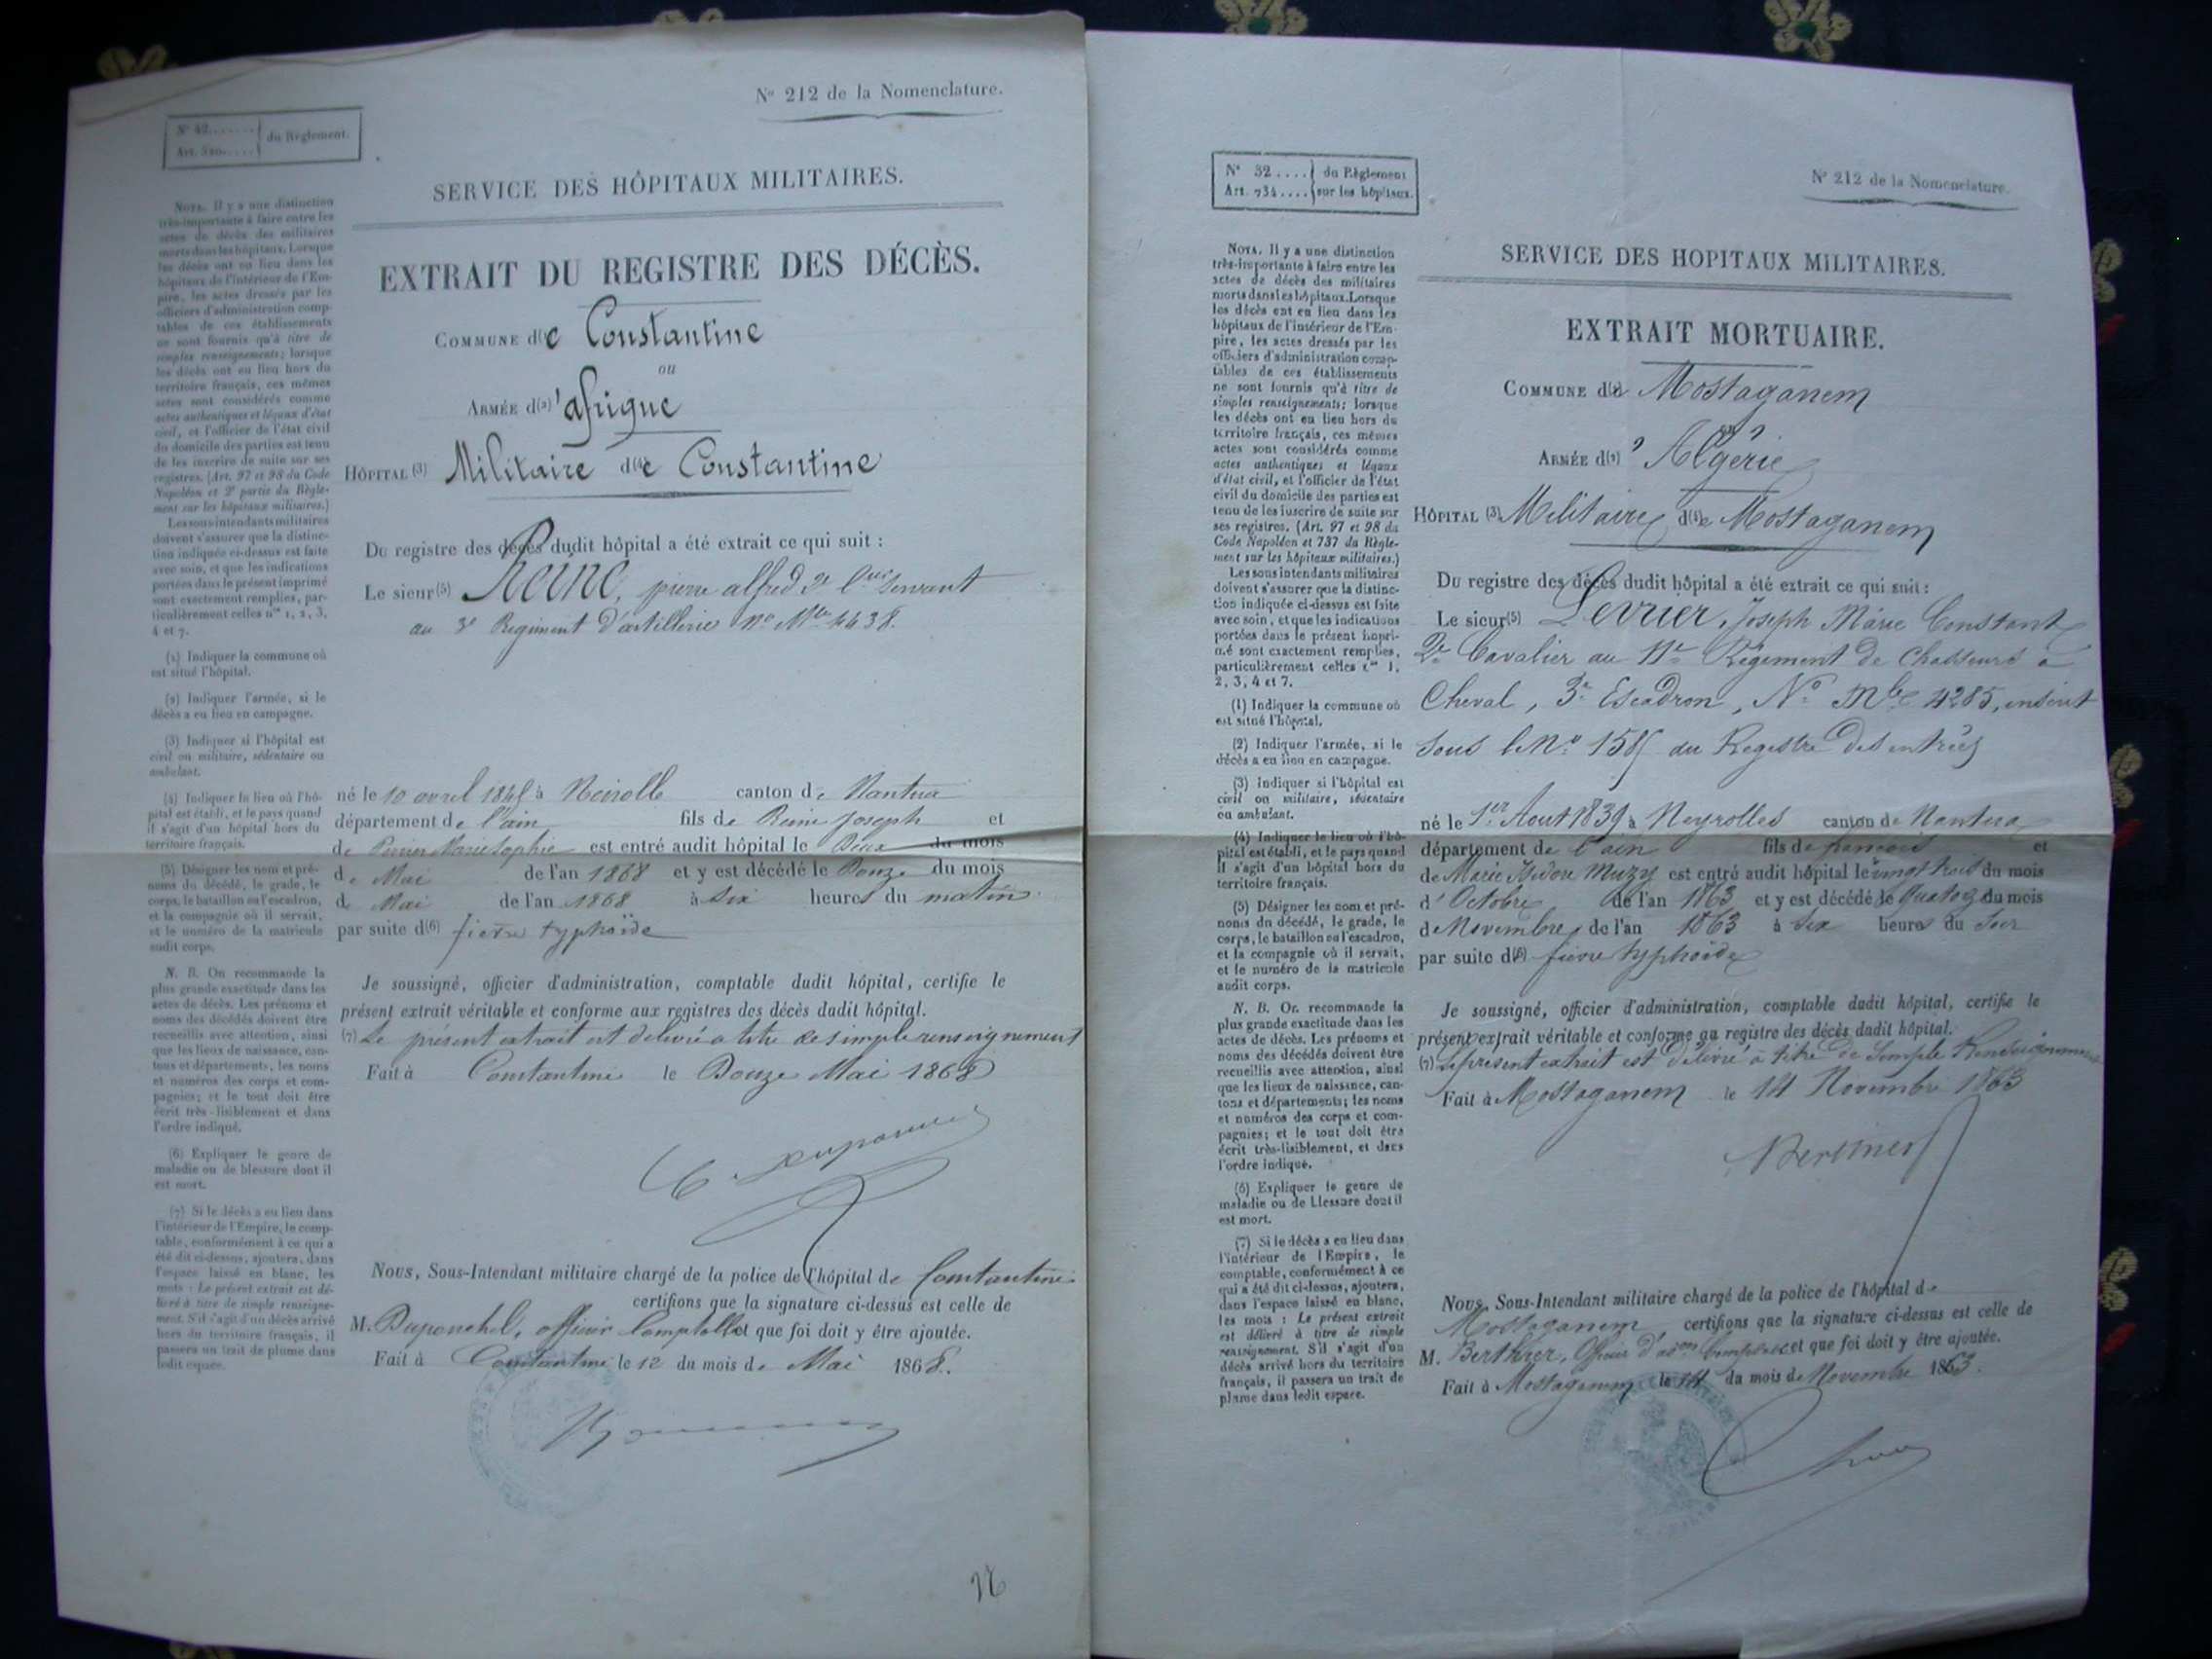 N° 212 de la Nomenclature.
du Règlement.
SERVICE DES HÔPITAUX MILITAIRES.
EXTRAIT DU REGISTRE DES DÉCÈS.
COMMUNE d(1)e Constantine
ou
ARMÉE d(2)'afrique
HÔPITAL (3) Militaire d(4)e Constantine
Du registre des décès dudit hôpital a été extrait ce qui suit :
Le sieur (5) Reine, pierre alfred 2e servant
au 3e Régiment d'artillerie n° Mle 4438.
né le 10 avril à Neirolle canton de Nantua
département de l'ain fils de Reine Joseph et
de Marie Sophie est entré audit hôpital le Deux du mois
de Mai de l'an 1868 et y est décédé le Douze du mois
de Mai de l'an 1868 à Six heures du matin
par suite d(6) fièvre typhoïde
Je soussigné, officier d'administration, comptable dudit hôpital, certifie le
présent extrait véritable et conforme aux registres des décès dudit hôpital.
(7) Le présent extrait est délivré à titre de simple renseignement
Fait à Constantine le Douze Mai 1868
Nous, Sous-Intendant militaire chargé de la police de l'hôpital de Constantine
certifions que la signature ci-dessus est celle de
M. Duponchel, officier Comptable et que foi doit y être ajoutée.
Fait à Constantine le 12 du mois de Mai 1868.
NOTA. Il y a une distinction
très-importante à faire entre les
actes de décès des militaires
morts dans les hôpitaux. Lorsque
les décès ont eu lieu dans les
hôpitaux de l'intérieur de l'Em-
pire, les actes dressés par les
officiers d'administration comp-
tables de ces établissements
ne sont fournis qu'à titre de
simples renseignements; lorsque
les décès ont eu lieu hors du
territoire français, ces mêmes
actes sont considérés comme
actes authentiques et légaux d'état
civil, et l'officier de l'état civil
du domicile des parties est tenu
de les inscrire de suite sur ses
registres. (Art. 97 et 98 du Code
Napoléon et 2e partie du Règle-
ment sur les hôpitaux militaires.)
Les sous-intendants militaires
doivent s'assurer que la distinc-
tion indiquée ci-dessus est faite
avec soin, et que les indications
portées dans le présent imprimé
sont exactement remplies, par-
ticulièrement celles nos 1, 2, 3,
4 et 7.
(1) Indiquer la commune où
est situé l'hôpital.
(2) Indiquer l'armée, si le
décès a eu lieu en campagne.
(3) Indiquer si l'hôpital est
civil ou militaire, sédentaire ou
ambulant.
(4) Indiquer le lieu où l'hô-
pital est établi, et le pays quand
il s'agit d'un hôpital hors du
territoire français.
(5) Désigner les nom et pré-
noms du décédé, le grade, le
corps, le bataillon ou l'escadron,
et la compagnie où il servait,
et le numéro de la matricule
audit corps.
N. B. On recommande la
plus grande exactitude dans les
actes de décès. Les prénoms et
noms des décédés doivent être
recueillis avec attention, ainsi
que les lieux de naissance, can-
tons et départements, les noms
et numéros des corps et com-
pagnies; et le tout doit être
écrit très-lisiblement et dans
l'ordre indiqué.
(6) Expliquer le genre de
maladie ou de blessure dont il
est mort.
(7) Si le décès a eu lieu dans
l'intérieur de l'Empire, le comp-
table, conformément à ce qui a
été dit ci-dessus, ajoutera, dans
l'espace laissé en blanc, les
mots : Le présent extrait est dé-
livré à titre de simple renseigne-
ment. S'il s'agit d'un décès arrivé
hors du territoire français, il
passera un trait de plume dans
ledit espace.
N° 32.... du Règlement
Art. 734.... sur les hôpitaux.
N° 212 de la Nomenclature.
SERVICE DES HOPITAUX MILITAIRES.
EXTRAIT MORTUAIRE.
COMMUNE d(1)e Mostaganem
ARMÉE d(2)'Algérie
HÔPITAL (3) Militaire d(4)e Mostaganem
Du registre des décès dudit hôpital a été extrait ce qui suit :
Le sieur (5) Levrier, Joseph Marie Constant
2e Cavalier au 11e Régiment de Chasseurs à
Cheval, 3e Escadron, N° Mle 4285, inscrit
sous le N° du Registre des entrées
né le 1er Aout 1839 à Neyrolles canton de Nantua
département de l'ain fils de françois et
de Marie Isidore Muzy est entré audit hôpital le vingt trois du mois
d'Octobre de l'an 1863 et y est décédé le quatorze du mois
de Novembre de l'an 1863 à Six heures du Soir
par suite d(6) fièvre typhoïde
Je soussigné, officier d'administration, comptable dudit hôpital, certifie le
présent extrait véritable et conforme au registre des décès dudit hôpital.
(7) Le présent extrait est délivré à titre de Simple Renseignement
Fait à Mostaganem le 14 Novembre 1863
Nous, Sous-Intendant militaire chargé de la police de l'hôpital de
Mostaganem certifions que la signature ci-dessus est celle de
M. Berthier, Officier d'adon Comptable et que foi doit y être ajoutée.
Fait à Mostaganem le 14 du mois de Novembre 1863.
NOTA. Il y a une distinction
très-importante à faire entre les
actes de décès des militaires
morts dans les hôpitaux. Lorsque
les décès ont eu lieu dans les
hôpitaux de l'intérieur de l'Em-
pire, les actes dressés par les
officiers d'administration comp-
tables de ces établissements
ne sont fournis qu'à titre de
simples renseignements; lorsque
les décès ont eu lieu hors du
territoire français, ces mêmes
actes sont considérés comme
actes authentiques et légaux
d'état civil, et l'officier de l'état
civil du domicile des parties est
tenu de les inscrire de suite sur
ses registres. (Art. 97 et 98 du
Code Napoléon et 737 du Règle-
ment sur les hôpitaux militaires.)
Les sous-intendants militaires
doivent s'assurer que la distinc-
tion indiquée ci-dessus est faite
avec soin, et que les indications
portées dans le présent impri-
mé sont exactement remplies,
particulièrement celles nos 1,
2, 3, 4 et 7.
(1) Indiquer la commune où
est situé l'hôpital.
(2) Indiquer l'armée, si le
décès a eu lieu en campagne.
(3) Indiquer si l'hôpital est
civil ou militaire, sédentaire
ou ambulant.
(4) Indiquer le lieu où l'hô-
pital est établi, et le pays quand
il s'agit d'un hôpital hors du
territoire français.
(5) Désigner les nom et pré-
noms du décédé, le grade, le
corps, le bataillon ou l'escadron,
et la compagnie où il servait,
et le numéro de la matricule
audit corps.
N. B. On recommande la
plus grande exactitude dans les
actes de décès. Les prénoms et
noms des décédés doivent être
recueillis avec attention, ainsi
que les lieux de naissance, can-
tons et départements; les noms
et numéros des corps et com-
pagnies; et le tout doit être
écrit très-lisiblement, et dans
l'ordre indiqué.
(6) Expliquer le genre de
maladie ou de blessure dont il
est mort.
(7) Si le décès a eu lieu dans
l'intérieur de l'Empire, le
comptable, conformément à ce
qui a été dit ci-dessus, ajoutera,
dans l'espace laissé en blanc,
les mots : Le présent extrait
est délivré à titre de simple
renseignement. S'il s'agit d'un
décès arrivé hors du territoire
français, il passera un trait de
plume dans ledit espace.